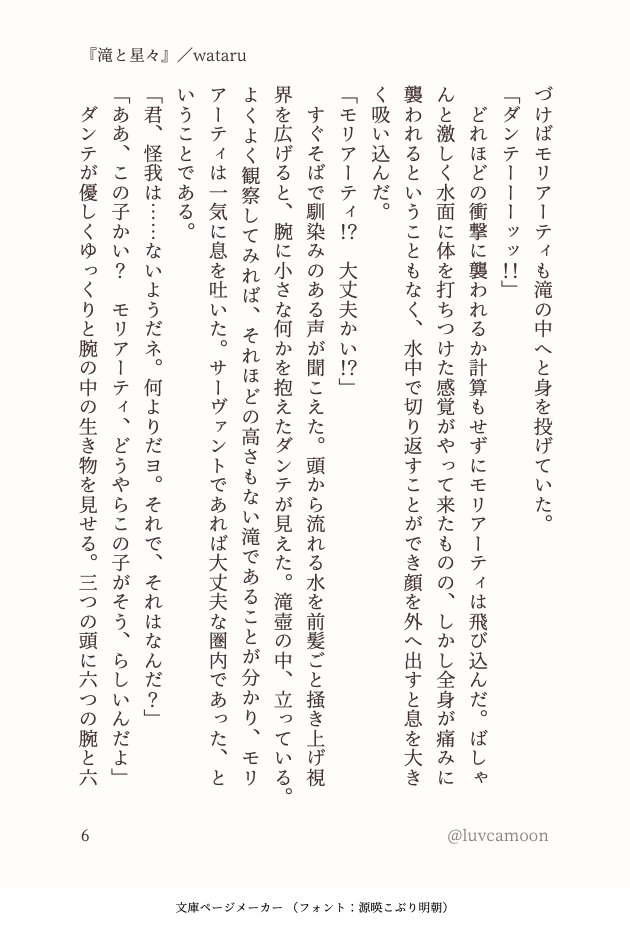 『滝と星々』／wataru
づけばモリアーティも滝の中へと身を投げていた。
「ダンテーーーッッ!!」
　どれほどの衝撃に襲われるか計算もせずにモリアーティは飛び込んだ。ばしゃ
んと激しく水面に体を打ちつけた感覚がやって来たものの、しかし全身が痛みに
襲われるということもなく、水中で切り返すことができ顔を外へ出すと息を大き
く吸い込んだ。
「モリアーティ!?　大丈夫かい!?」
　すぐそばで馴染みのある声が聞こえた。頭から流れる水を前髪ごと掻き上げ視
界を広げると、腕に小さな何かを抱えたダンテが見えた。滝壺の中、立っている。
よくよく観察してみれば、それほどの高さもない滝であることが分かり、モリ
アーティは一気に息を吐いた。サーヴァントであれば大丈夫な圏内であった、と
いうことである。
「君、怪我は……ないようだネ。何よりだヨ。それで、それはなんだ？」
「ああ、この子かい？　モリアーティ、どうやらこの子がそう、らしいんだよ」
　ダンテが優しくゆっくりと腕の中の生き物を見せる。三つの頭に六つの腕と六
6
@luvcamoon
文庫ページメーカー（フォント：源暎こぶり明朝）